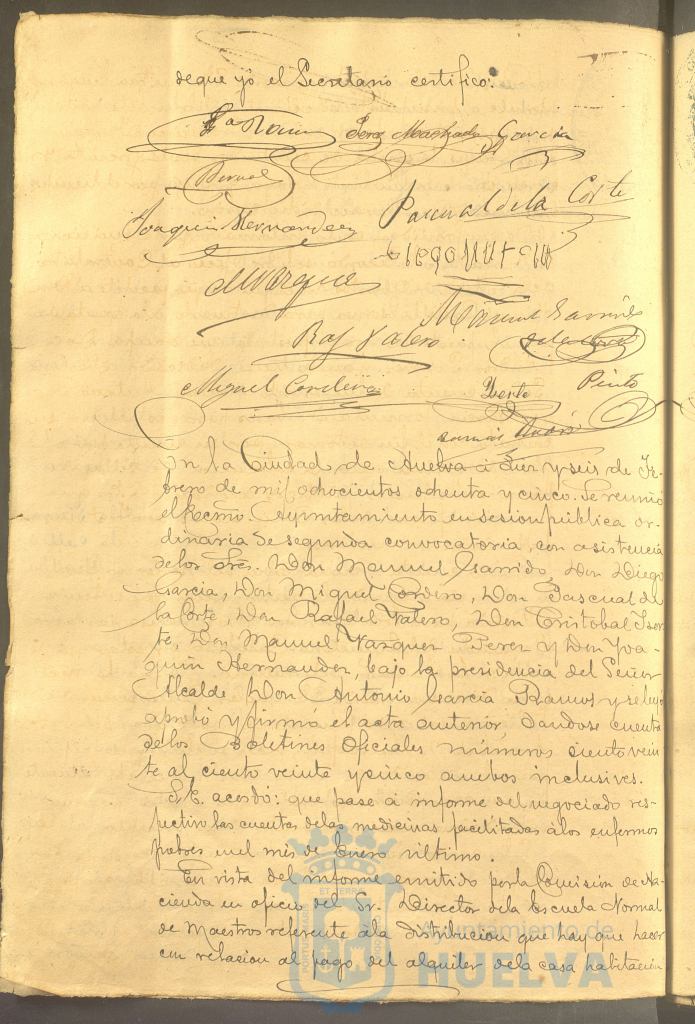 de que yo el Secretario certifico.
Ga Ramos Perez Machado Garcia
Bernal
Joaquin Hernandez Pascual de la Corte
M Vazquez
Manuel Garrido
Raf Valero
Miguel Cordero Yzerte Pinto
En la Ciudad de Huelva á diez y seis de Fe-
brero de mil ochocientos ochenta y cinco. Se reunió
el Excmo. Ayuntamiento en sesion pública or-
dinaria de segunda convocatoria, con asistencia
de los Sres. Don Manuel Garrido, Don Diego
Garcia, Don Miguel Cordero, Don Pascual de
la Corte, Don Rafael Valero, Don Cristobal Yzer-
te, Don Manuel Vazquez Perez y Don Joa-
quin Hernandez, bajo la presidencia del Señor
Alcalde Don Antonio Garcia Ramos y se leyó
aprobó y firmó el acta anterior, dandose cuenta
de los Boletines Oficiales números ciento vein-
te al ciento veinte y cinco ambos inclusives.
S.E. acordó: que pase á informe del negociado res-
pectivo las cuentas de las medicinas facilitadas á los enfermos
pobres en el mes de Enero último.
En vista del informe emitido por la Comisión de Ha-
cienda en oficio del Sr. Director de la Escuela Normal
de Maestros referente á la distribucion que hay que hacer
con relacion al pago del alquiler de la casa habitación
Ayuntamiento de
HUELVA